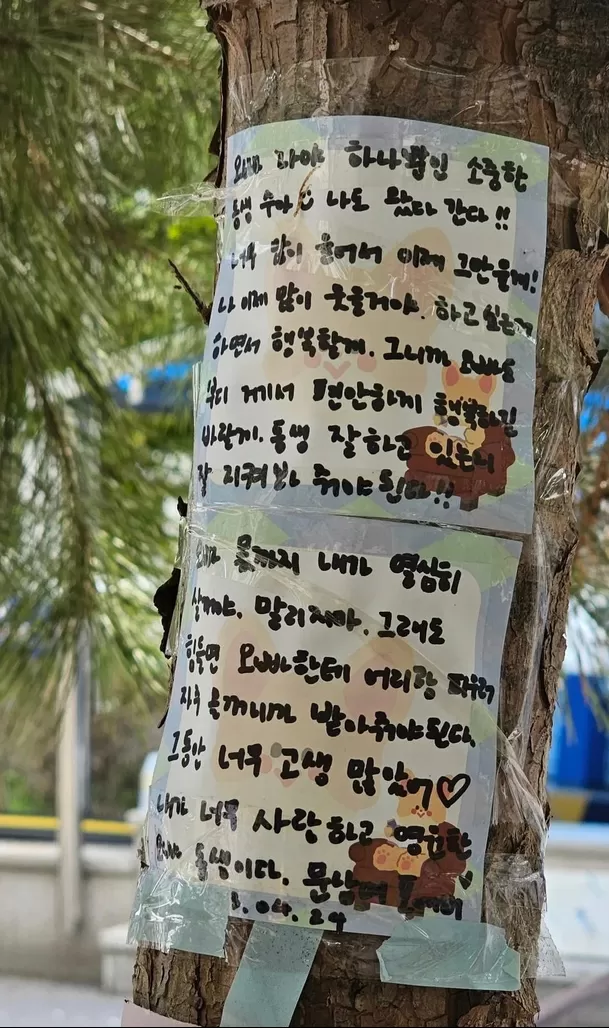 오빠 나야 하나뿐인 소중한
동생 수아 나도 왔다 간다!!
너무 많이 울어서 이제 그만울게!
나 이제 많이 웃을거야. 하고싶은거
하면서 행복할게. 그니까 오빠도
부디 거기서 편안하게 행복하길
바랄게. 동생 잘하고 있는지
잘 지켜봐 줘야된다!!
오빠 몫까지 내가 열심히
살꺼야. 말리지마. 그래도
힘들면 오빠한테 어리광 피우러
자주 올꺼니까 받아줘야된다.
그동안 너무 고생 많았어♡
내가 너무 사랑하고 영원한
오빠 동생이다. 문상
.04.24